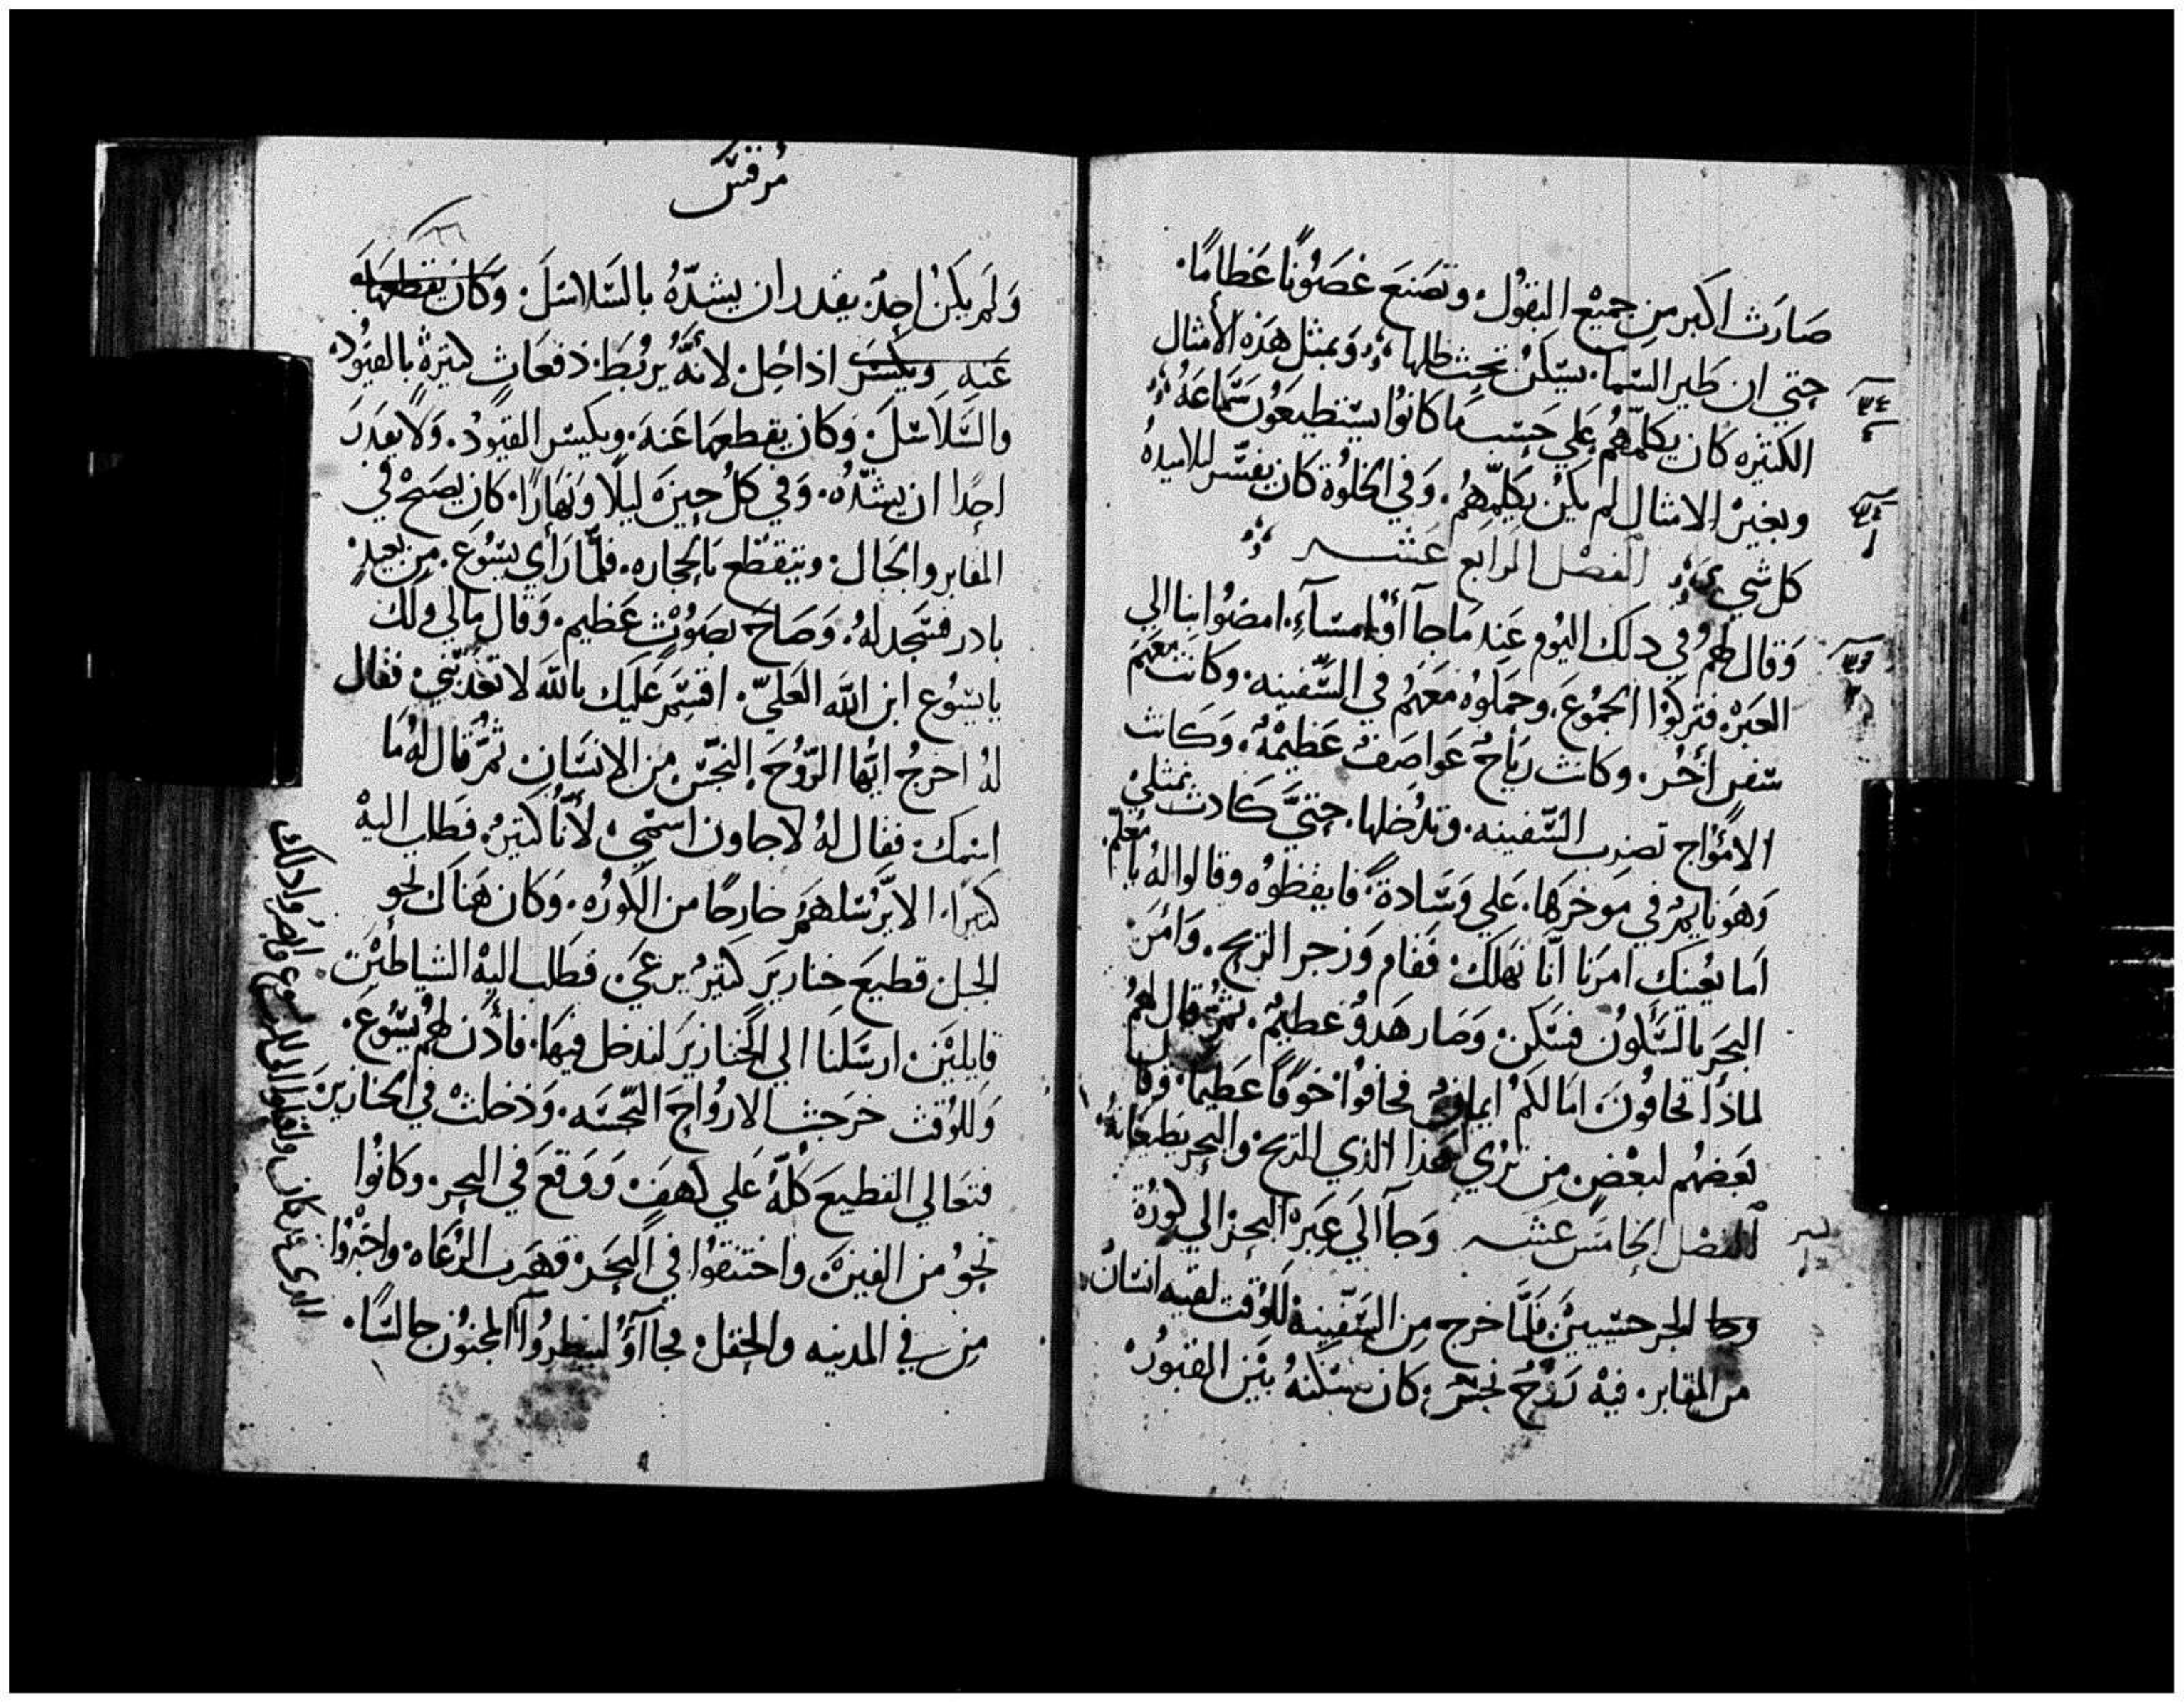 صَارَت اكبر من جميْع البقُول. وتصَنعَ غصَوُنًا عَظامًا.
حتي ان طَير السّما. يسّكنُ تحت ظلها وَبمثل هَذه الأمثال
الكتيره كان يكلّمهُم عَلي حَسَب مَا كانوُا يسّتطيعوُن سّمَاعَهُ
وبغيرْ الامثال لم يكَنْ يكلّمهِمُ. وَفي الخلوُة كان يفسّر لتلاميدهُ
كل شي الفصْل الرابع عَشر
وَقال لهمُ في دلك اليوُم عَند مَا جآ أوُامسَآءِ. امضوُا بنا الي
العَبرْ. فتركوُا الجموُعَ. وحمَلوُه مَعَهمُ في السَّفينه. وكانت معَهمَ
سّفن أخُر. وكانت ريَاحُ عَواصَفُ عَظيمْهُ. وَكَانت
الامَوُاج تضرب السّفينه. وتدُخلها. حتيَّ كَادت تمتليْ
وَهوَ نايمُ في موَخرَهَا. عَلي وَسَادةً. فايقظوُه وقالوا لهُ يا مُعَلّم
اَما يعُنيك امرَنا أنّا نَهلكَ. فقَام وَزجر الريح. وَامَرَ
البحَرَ بالسَّلوُن فسَكنَ. وَصَار هَدوُ عَظيمُ. ثمُ قال لهمُ
لماذا تخافُونَ. امَا لكمُ ايمانُ فخافوُا خوَفًا عَظيمًا. وَقا ل
بعَضهُم لبعْضٍ. من ترُي هذا الذي الريح والبحر يَطيعَانهُ.
الفصْل الخامسَ عَشر وَجآ اليَ عَبَره البحرْ الي كوُرَة
الجرجسّييَن فَلمَّا خرج من السَّفينهْ للوُقت لقيه انسّانُ
من المقابر. فيهْ رَوُحُ نجسُ. كان مسْكنهُ بيَن القبوُر.
مُرقسّ
وَلمَ يكَنْ احدُ يقدر ان يشدّهُ بالسَّلاسَلَ. وَكاَن يقطعهَا
عَنه ويكسّرَ اذا حُل. لأنهَُّ يرُبَط. دفعَاتٍ كتيرهُ بالقيوُد.
والسَّلاَسّلَ. وَكان يقطعهَا عَنهَ. ويكسّر القيَودُ. وَلا يقدرَ
احدًا ان يشدّهُ. وَفي كلُ حينَ ليلًا وَنهَارًا. كان يصَيحْ في
المقابر والجَبال. ويتقطّع بَالحجاره. فلمَّا رَأي يسّوُعَ. من بعيدٍ
بادر فسّجد لهُ. وَصَاحَ بصَوُتٍ عَظيم. وَقال مَالي ولك
يايسّوُع ابن الله العَليّ. اقسّمَ عَليَك باللهَ لا تعَذبّني. فقال
لهُ اخرجُ ايّها الرّوُحَ النجّس. من الانسَان. ثمُّ قال لهُ مَا
اسمك. فقال لهُ لاجاون اسّميْ. لأنّا كتيرُ. فطَلب اليهْ
كتيرًا. الا يرُسّلهمَ خارجًا من الكوُره. وَكان هَناك نحو
الجبل قطيعَ خنازيرَ كتيرُ يرعَيَ. فطَلب اليهْ الشياطيَن
قايليْنَ. ارسّلنَا الي الخنازيرَ لندخل فيهَا. فأذن لهمُ يسّوُعَ.
وَللوُقت خرَجت الاروُاح النّجسَه. وَدخلت في الخنازيرَ
فتعَالي القطيعَ كلهُّ عَلي كهفٍ وَوَقعَ في البحر. وكانوُا
نحوُ من الفينَ. واختنقوُا في البَحرَ. فهَرب الرُعَاه. واخبرْوُا
من في المدينه والحقل. فجاآوُ لينظروُا المجنوُن جالسًا.